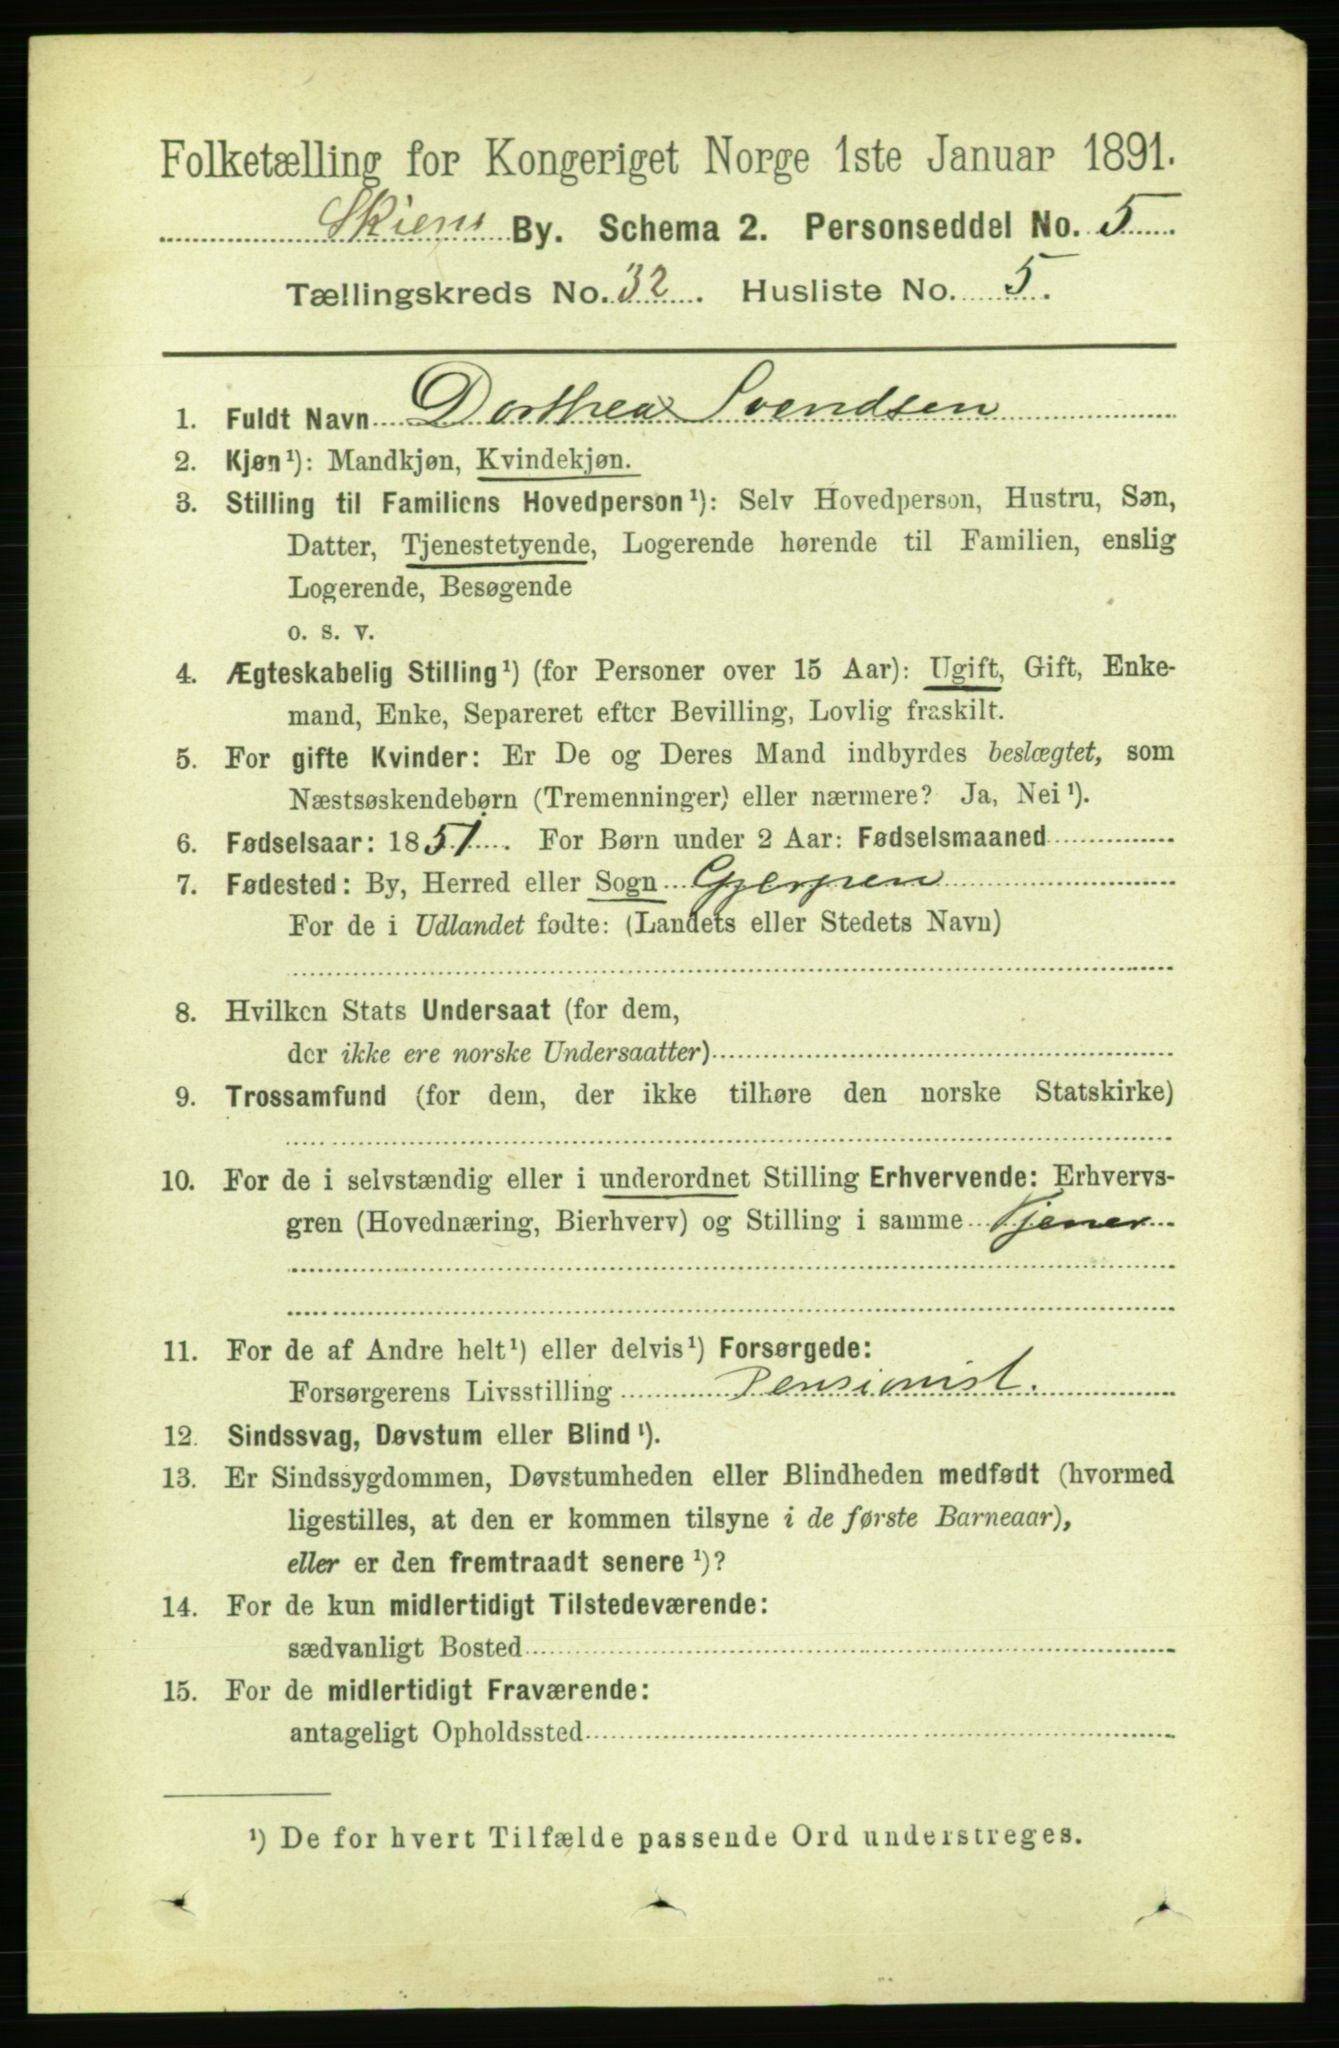 Folketælling for Kongeriget Norge 1ste Januar 1891.
Skiens By. Schema 2. Personseddel No. 5
Tællingskreds No. 32. Husliste No. 5.
1. Fuldt Navn Dorthea Svendsen
2. Kjøn¹): Mandkjøn, Kvindekjøn.
3. Stilling til Familiens Hovedperson¹): Selv Hovedperson, Hustru, Søn,
Datter, Tjenestetyende, Logerende hørende til Familien, enslig
Logerende, Besøgende
o. s. v.
4. Ægteskabelig Stilling¹) (for Personer over 15 Aar): Ugift, Gift, Enke-
mand, Enke, Separeret efter Bevilling, Lovlig fraskilt.
5. For gifte Kvinder: Er De og Deres Mand indbyrdes beslægtet, som
Næstsøskendebørn (Tremenninger) eller nærmere? Ja, Nei¹).
6. Fødselsaar: 1851. For Børn under 2 Aar: Fødselsmaaned
7. Fødested: By, Herred eller Sogn Gjerpen
For de i Udlandet fødte: (Landets eller Stedets Navn)
8. Hvilken Stats Undersaat (for dem,
der ikke ere norske Undersaatter)
9. Trossamfund (for dem, der ikke tilhøre den norske Statskirke)
10. For de i selvstændig eller i underordnet Stilling Erhvervende: Erhvervs-
gren (Hovednæring, Bierhverv) og Stilling i samme Tjener
11. For de af Andre helt¹) eller delvis¹) Forsørgede:
Forsørgerens Livsstilling Pensionist.
12. Sindssvag, Døvstum eller Blind¹).
13. Er Sindssygdommen, Døvstumheden eller Blindheden medfødt (hvormed
ligestilles, at den er kommen tilsyne i de første Barneaar),
eller er den fremtraadt senere¹)?
14. For de kun midlertidigt Tilstedeværende:
sædvanligt Bosted
15. For de midlertidigt Fraværende:
antageligt Opholdssted
¹) De for hvert Tilfælde passende Ord understreges.